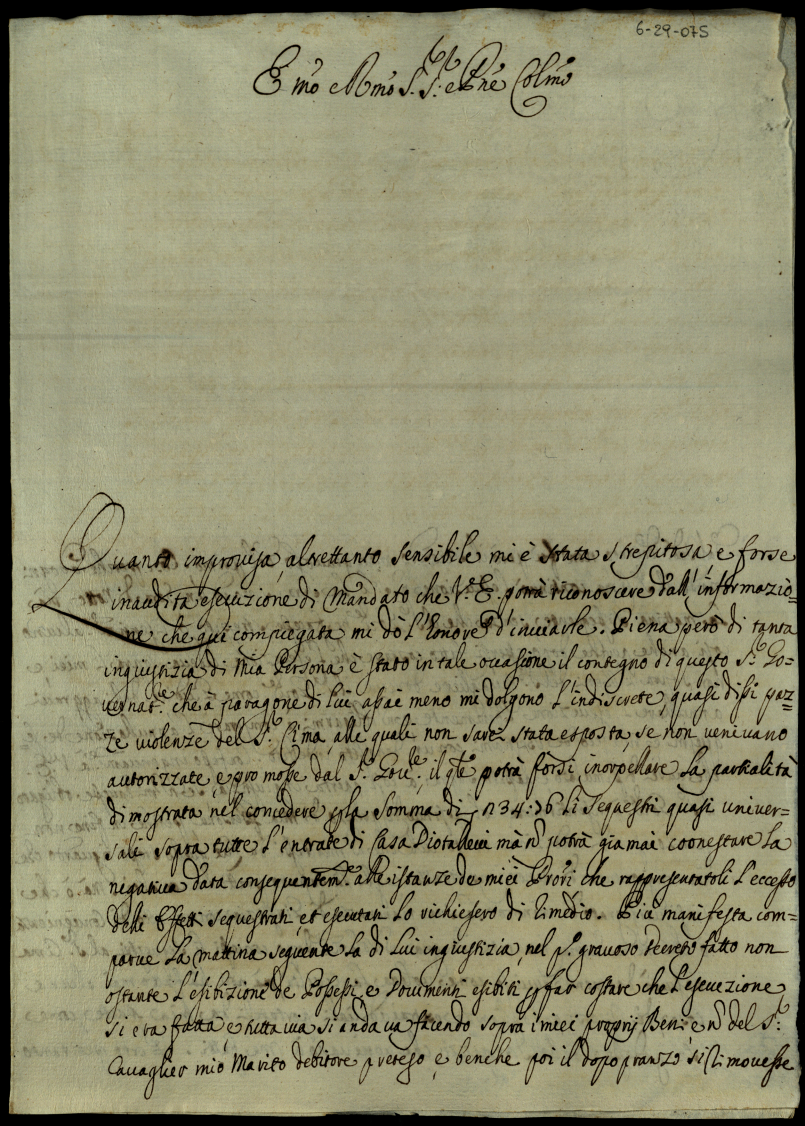 6-29-075
Emo e Rmo S. S. e Pne Colmo
Quanto improvisa, altrettanto sensibile mi è stata strepitosa, e forse
inaudita esecuzione di Mandato che V. E. potrà riconoscere dall'informazio-
ne che qui compiegata mi dò l'honore d'inviarle. Piena però di tanta
ingiustizia di mia Persona è stato in tale occasione il contegno di questo S. Go=
vernat.re che à paragone di lui assai meno mi dolgono l'indiscrete, quasi dissi paz=
ze violenze del S. Cima, alle quali non sarei stata esposta, se non venivano
autorizzate, e promosse dal S. Gov.re, il qle potrà forsi inorpellare la parzialità
dimostrata nel concedere la Somma di 34:76 li Sequestri quasi univer-
sali sopra tutte l'entrate di Casa Diotallevi mà potrà giamai coonestare la
negativa data conseguentem.e alle istanze de miei Prori che rappresentatoli l'eccesso
delli Effetti sequestrati, et esecutati lo richiesero di rimedio. Più manifesta com-
parve la mattina seguente la di lui ingiustizia, nel gravoso decreto fatto non
ostante l'esibizione de Possessi, e Documenti esibiti far costare che l'esecuzione
si era fatta, e tutta via si andava facendo soprà i miei proprij Beni e del S.
Cavaglier mio Marito debitore preteso, e benche poi il dopo pranzo si rimovesse